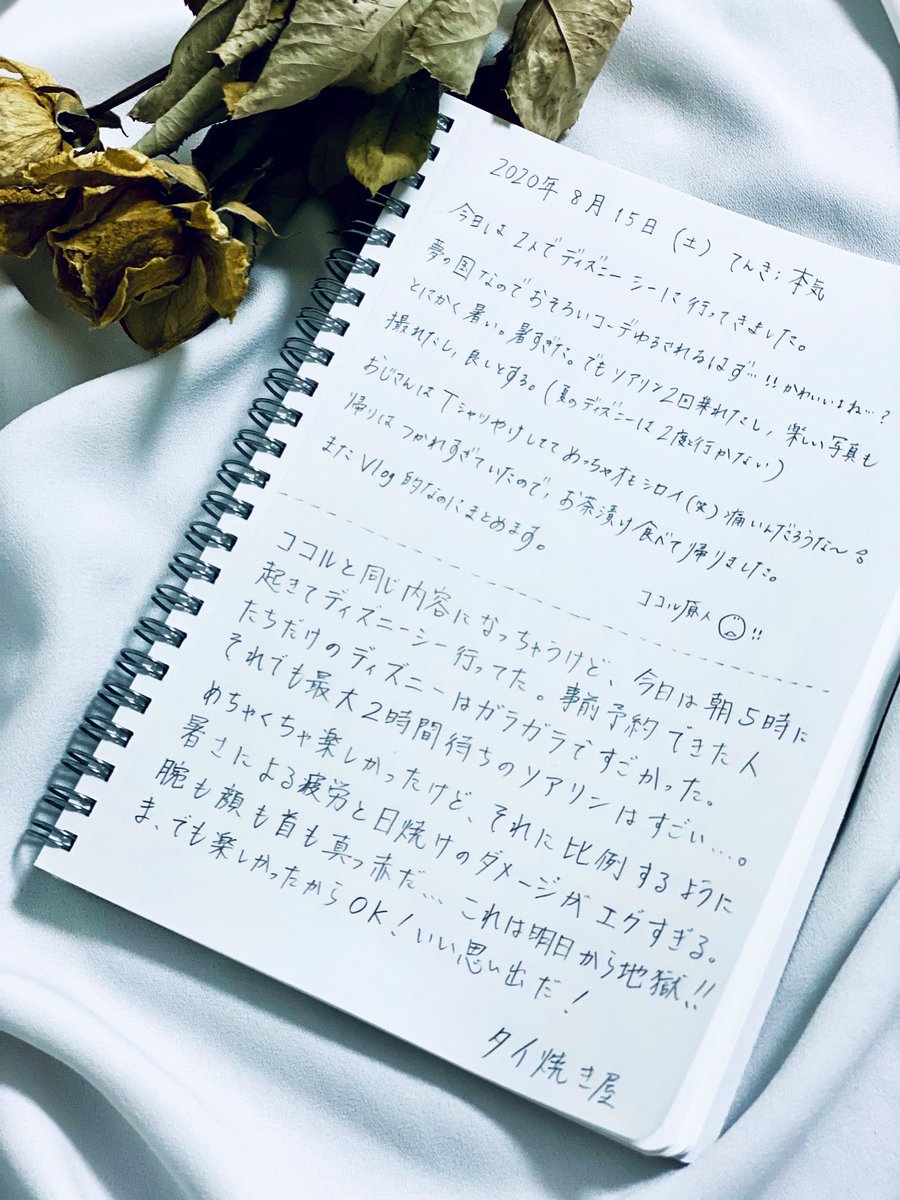 2020年8月15日(土) てんき:本気
今日は2人でディズニーシーに行ってきました。
夢の国なのでおそろいコーデゆるされるはず…!!かわいいよね…?
とにかく暑い。暑すぎた。でもソアリン2回乗れたし、楽しい写真も
撮れたし、良しとする。(夏のディズニーは2度と行かない)
おじさんはTシャツやけしてて めっちゃオモシロイ(笑)痛いんだろうな〜
帰りはつかれすぎていたので、お茶漬け食べて帰りました。
またVlog的なのにまとめます。
ココル原人 !!
ココルと同じ内容になっちゃうけど、今日は朝5時に
起きてディズニーシー行ってた。事前予約できた人
たちだけのディズニーはガラガラですごかった。
それでも最大2時間待ちのソアリンはすごい…。
めちゃくちゃ楽しかったけど、それに比例するように
暑さによる疲労と日焼けのダメージがエグすぎる。
腕も顔も首も真っ赤だ… これは明日から地獄!!
ま、でも楽しかったからOK!いい思い出だ!
タイ焼き屋